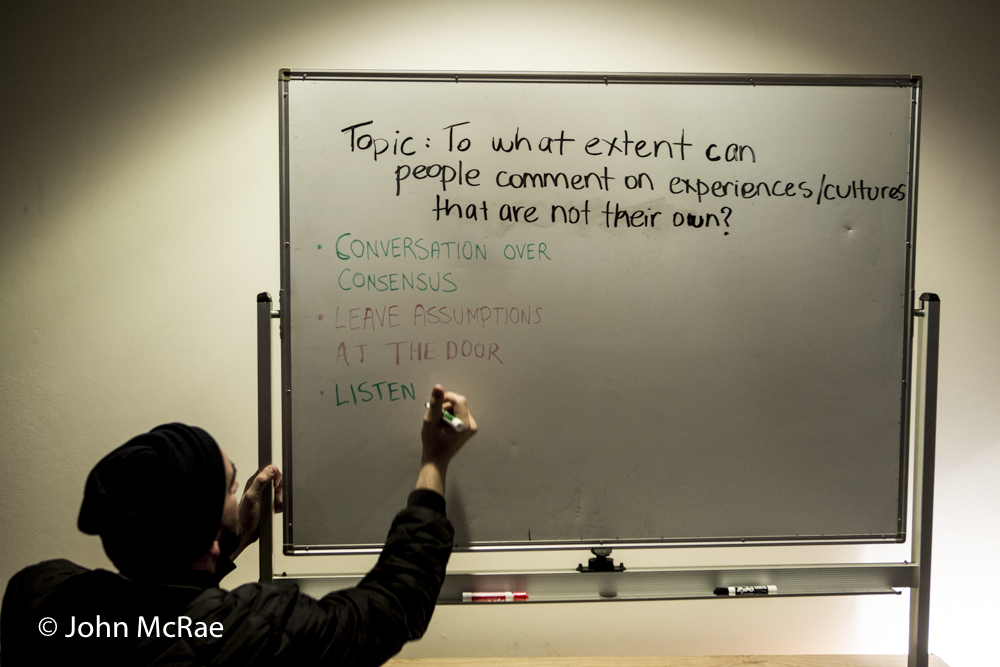 Topic: To what extent can
people comment on experiences/cultures
that are not their own?
• CONVERSATION OVER
CONSENSUS
• LEAVE ASSUMPTIONS
AT THE DOOR
• LISTEN
EXPO
© John McRae